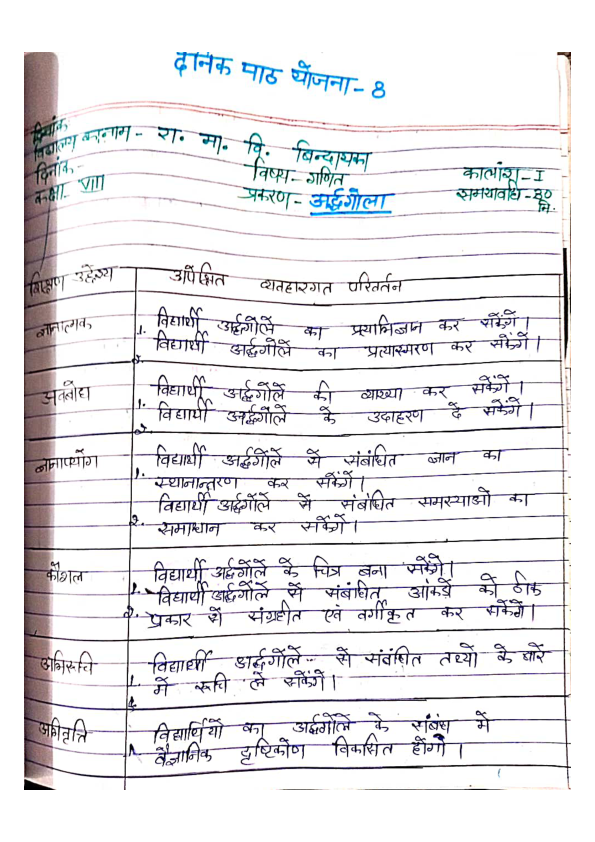 दैनिक पाठ योजना - 8
दिनांक
विद्यालय का नाम - रा. मा. वि. बिन्दायका
दिनांक - विषय - गणित कालांश - I
कक्षा - VIII प्रकरण - अर्द्धगोला समयावधि - 40 मि.
शिक्षण उद्देश्य अपेक्षित व्यवहारगत परिवर्तन
ज्ञानात्मक 1. विद्यार्थी अर्द्धगोले का प्रत्याभिज्ञान कर सकेंगे।
2. विद्यार्थी अर्द्धगोले का प्रत्यास्मरण कर सकेंगे।
अवबोध 1. विद्यार्थी अर्द्धगोले की व्याख्या कर सकेंगे।
2. विद्यार्थी अर्द्धगोले के उदाहरण दे सकेंगे।
ज्ञानोपयोग 1. विद्यार्थी अर्द्धगोले से संबंधित ज्ञान का
स्थानान्तरण कर सकेंगे।
2. विद्यार्थी अर्द्धगोले से संबंधित समस्याओं का
समाधान कर सकेंगे।
कौशल 1. विद्यार्थी अर्द्धगोले के चित्र बना सकेंगे।
2. विद्यार्थी अर्द्धगोले से संबंधित आंकड़े को ठीक
प्रकार से संग्रहीत एवं वर्गीकृत कर सकेंगे।
अभिरुचि 1. विद्यार्थी अर्द्धगोले से संबंधित तथ्यों के बारे
में रूचि ले सकेंगे।
अभिवृत्ति 1. विद्यार्थियों का अर्द्धगोले के संबंध में
वैज्ञानिक दृष्टिकोण विकसित होगा।